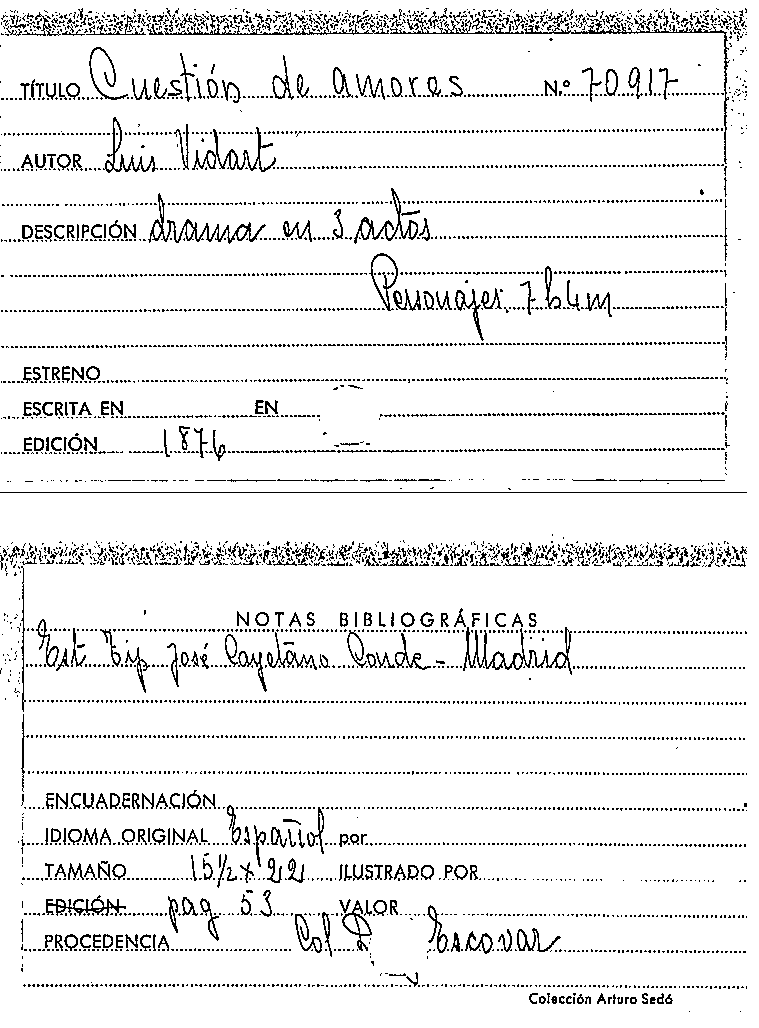 TÍTULO Cuestión de amores N.º 70917
AUTOR Luis Vidart
DESCRIPCIÓN drama en 3 actos
Personajes. 7 h 4 m
ESTRENO
ESCRITA EN EN
EDICIÓN 1876
NOTAS BIBLIOGRÁFICAS
Est Tip José Cayetano Conde - Madrid
ENCUADERNACIÓN
IDIOMA ORIGINAL Español por
TAMAÑO 15 1/2 x 22 ILUSTRADO POR
EDICIÓN pag 53 VALOR
PROCEDENCIA Col Escovar
Colección Arturo Sedó